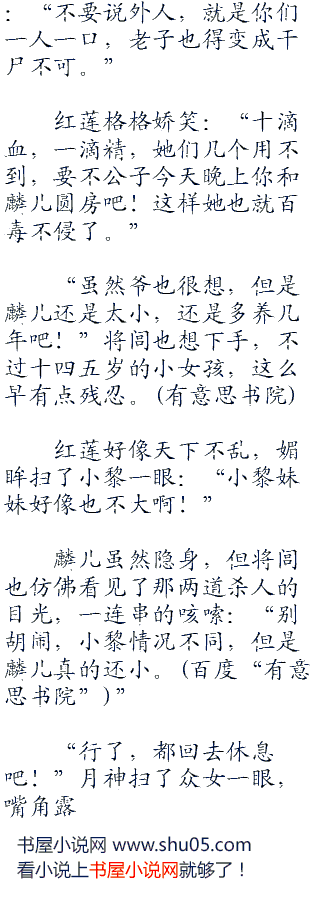 ：“不要说外人，就是你们
一人一口，老子也得变成干
尸不可。”
红莲格格娇笑：“十滴
血，一滴精，她们几个用不
到，要不公子今天晚上你和
麟儿圆房吧！这样她也就百
毒不侵了。”
“虽然爷也很想，但是
麟儿还是太小，还是多养几
年吧！”将闾也想下手，不
过十四五岁的小女孩，这么
早有点残忍。(有意思书院)
红莲好像天下不乱，媚
眸扫了小黎一眼：“小黎妹
妹好像也不大啊！”
麟儿虽然隐身，但将闾
也仿佛看见了那两道杀人的
目光，一连串的咳嗦：“别
胡闹，小黎情况不同，但是
麟儿真的还小。(百度“有意
思书院”)”
“行了，都回去休息
吧！”月神扫了众女一眼，
嘴角露
书屋小说网 www.shu05.com
看小说上书屋小说网就够了！